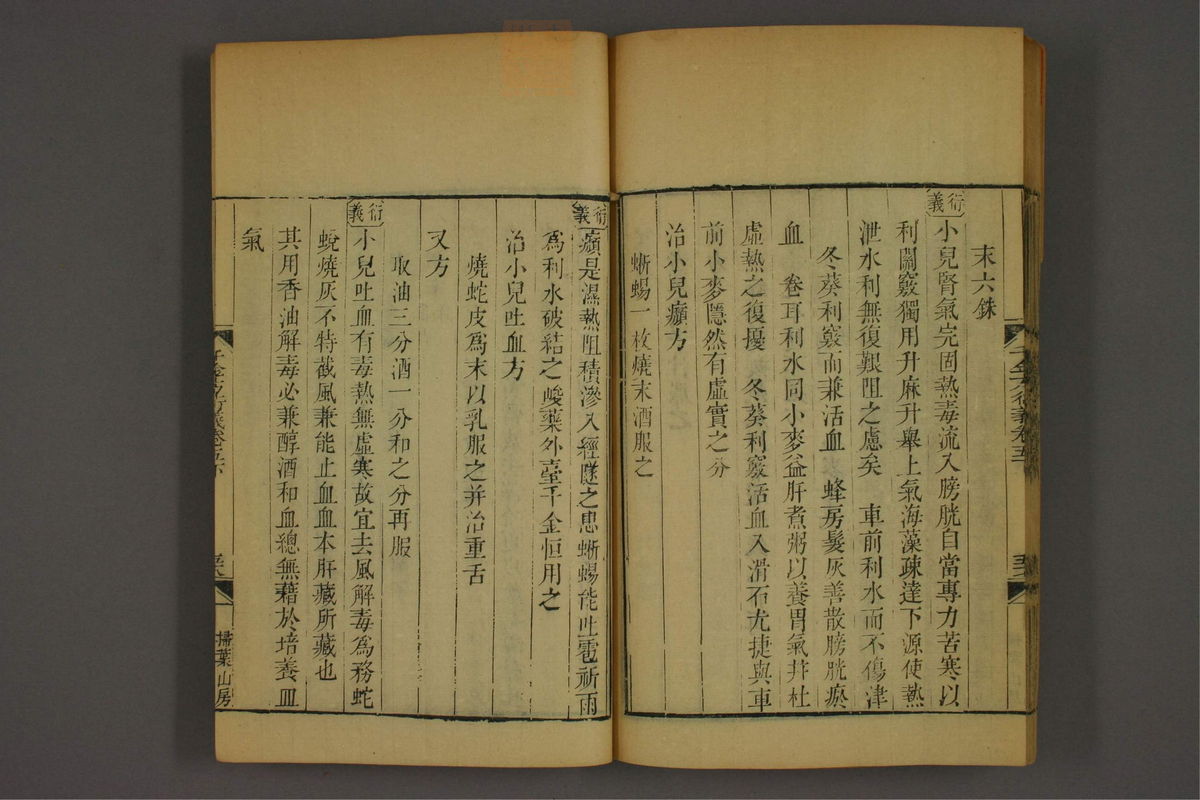 末六銖
衍義
小兒腎氣完固熱毒流入膀胱自當專力苦寒以
利關竅獨用升麻升舉上氣海藻疎達下源使熱
泄水利無復艱阻之慮矣　車前利水而不傷津
冬葵利竅而兼活血　蜂房髮灰善散膀胱瘀
血　卷耳利水同小麥益肝煮粥以養胃氣幷杜
虛熱之復擾　冬葵利竅活血入滑石尤捷與車
前小麥隱然有虛實之分
治小兒㿗方
蜥蜴一枚燒末酒服之
衍義
㿗是濕熱阻積滲入經隧之患蜥蜴能吐雹祈雨
爲利水破結之峻藥外臺千金恒用之
治小兒吐血方
燒蛇皮爲末以乳服之幷治重舌
又方
取油三分酒一分和之分再服
衍義
小兒吐血有毒熱無虛寒故宜去風解毒爲務蛇
蛻燒灰不特截風兼能止血血本肝藏所藏也
其用香油解毒必兼醇酒和血總無藉於培養血
氣
千金方衍義卷五下
掃葉山房